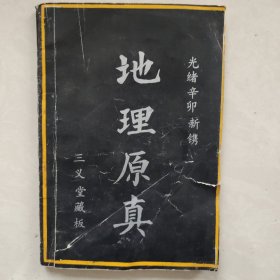 光緒辛卯新鐫
地理原真
三义堂藏板